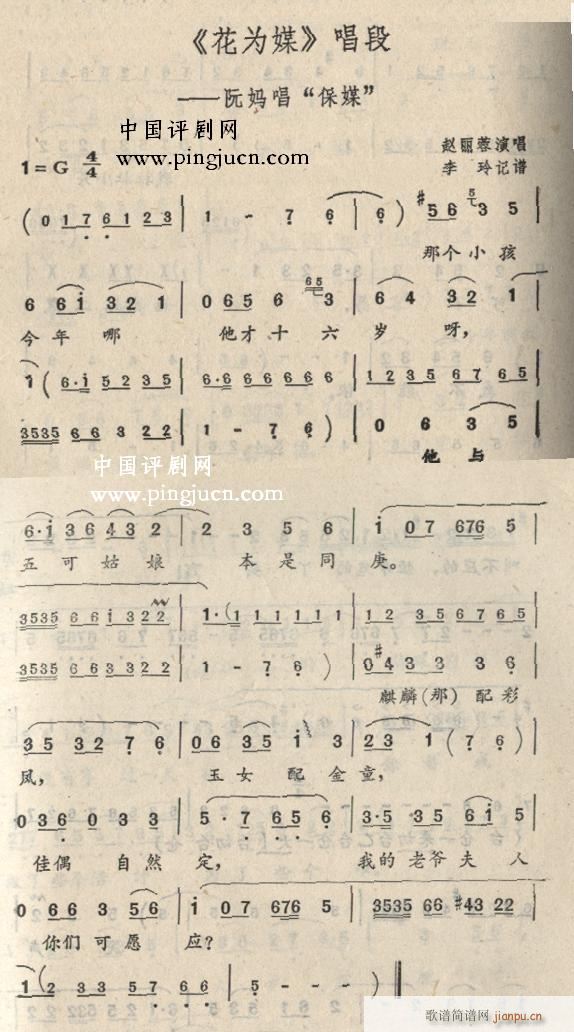 《花为媒》唱段
——阮妈唱“保媒”
中国评剧网
www.pingjucn.com
赵丽蓉演唱
李玲记谱
1=G 4/4
(0 1 7 6 1 2 3 | 1 - 7 6 | 6) #5 6 3 5
那个小孩
6 6 i 3 2 1 | 0 6 5 6 3 | 6 4 3 2 1
今年哪 他才十六岁呀,
1 (6·i 5 2 3 5 | 6·6 6 6 6 6 6 | 1 2 3 5 6 7 6 5
3535 6 6 3 2 2 | 1 - 7 6) | 0 6 3 5
他与
中国评剧网
www.pingjucn.com
6·i 3 6 4 3 2 | 2 3 5 6 | i 0 7 676 5
五可姑娘 本是同庚。
3535 6 6 i 3 2 2 | 1·(1 1 1 1 1 1 | 1 2 3 5 6 7 6 5
3535 6 6 3 2 2 | 1 - 7 6) | 0 #4 3 3 3 6
麒麟(那)配彩
3 5 3 2 7 6 | 0 6 3 5 i 3 | 2 3 1 (7 6)
凤, 玉女配金童,
0 3 6 0 3 3 | 5·7 6 5 6 | 3·5 3 5 6 i 5
佳偶自然定, 我的老爷夫人
0 6 6 3 5 6 | i 0 7 676 5 | 3535 66 #43 22
你们可愿应?
1 (2 3 3 5 7 6 6 | 5 - - -) ‖
歌谱简谱网
jianpu.cn